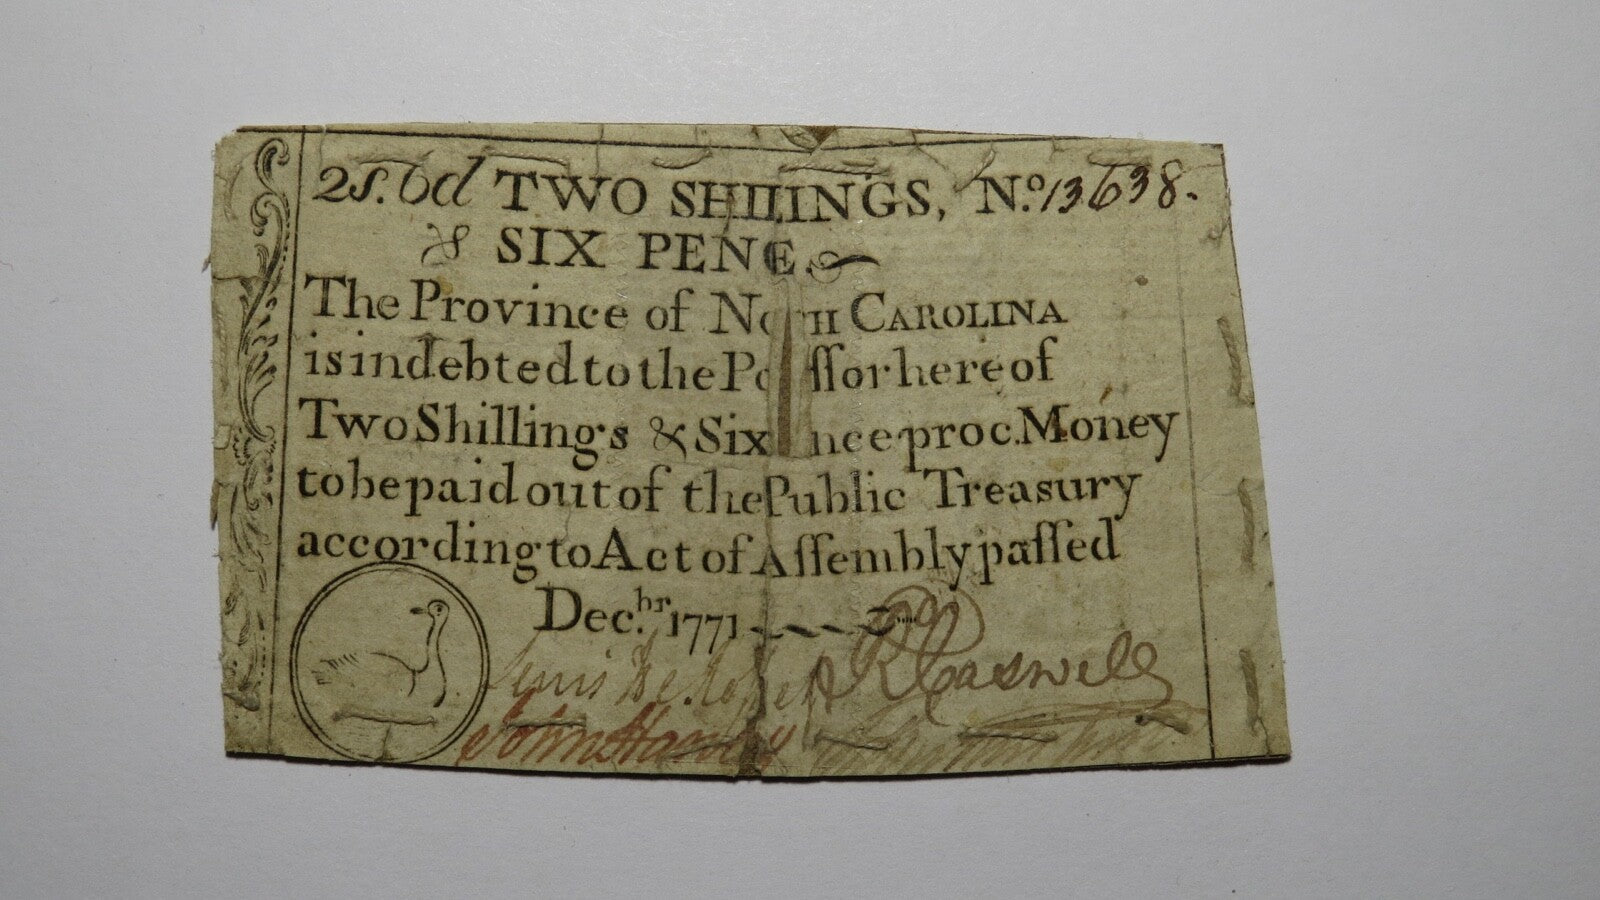 2s.6d TWO SHILLINGS, No. 13638.
& SIX PENE.
The Province of North CAROLINA
is indebted to the Poſſſor here of
Two Shillings & Six nce proc. Money
to be paid out of the Public Treasury
according to Act of Aſſembly paſſed
Dec.br 1771
Lewis De Roſset R Caswell
John Harvey